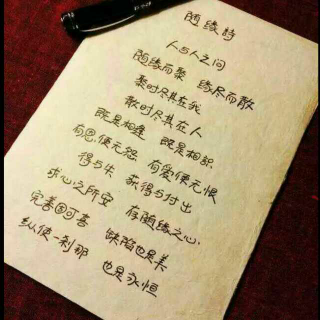 随缘诗
人与人之间
随缘而聚 缘尽而散
聚时尽其在我
散时尽其在人
既是相逢 既是相识
有恩便无怨 有爱便无恨
得与失 获得与付出
求心之所安 存随缘之心
完善固可喜 缺陷也是美
纵使一刹那 也是永恒